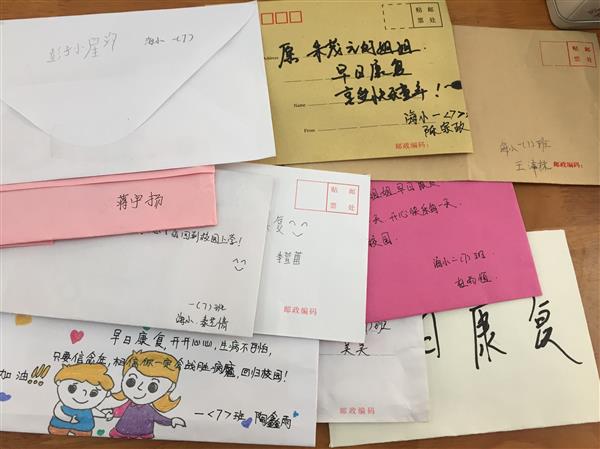 海小一<7>
贴 邮
票 处
Address
愿 朱茂元的姐姐
早日康复
享受快乐童年！
Name
From
海小一<7>班
陈家政
邮政编码：
贴 邮
票 处
海小一<7>班
王
邮政编码：
蒋宇扬
回到校园上学！
一<7>班
海小
贴 邮
票 处
复
李萱菡
邮政编码
姐姐早日康复
天，开心快乐每一天
校园.
海小一<7>班
早日康复，开开心心，生病不可怕，
只要信念在，相信你一定会战胜病魔，回归校园！
加油!!!
一<7>班 陶鑫雨
班
吴昊
邮政编码：
日康复